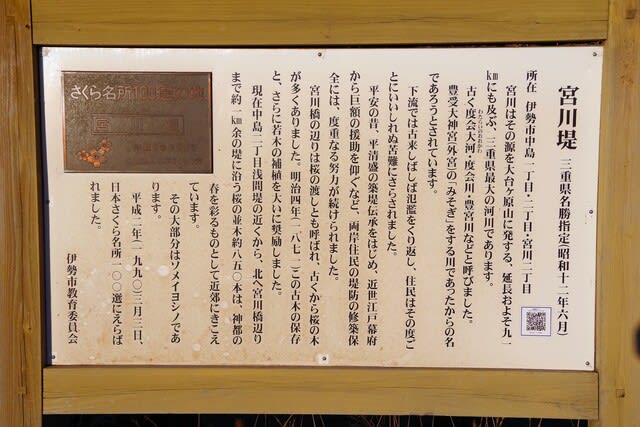 宮川堤 三重県名勝指定(昭和十二年六月)
所在 伊勢市中島一丁目・二丁目・宮川二丁目
宮川はその源を大台ヶ原山に発する、延長およそ九一
㎞にも及ぶ、三重県最大の河川であります。
古く度会大河・度会川・豊受川などと呼びました。
わたらいのおおかわ
豊受大神宮〔外宮〕の「みそぎ」をする川であったからの名
であろうとされています。
下流では古来しばしば氾濫をくり返し、住民はその度ご
とにいいしれぬ苦難にさらされました。
平安の昔、平清盛の築堤伝承をはじめ、近世江戸幕府
から巨額の援助を仰ぐなど、両岸住民の堤防の修築保
全には、度重なる努力が続けられました。
宮川橋の辺りは桜の渡しとも呼ばれ、古くから桜の木
が多くありました。明治四年〔一八七一〕この古木の保存
と、さらに若木の補植を大いに奨励しました。
現在中島二丁目浅間堤の近くから、北へ宮川橋辺り
まで約一㎞余の堤に沿う桜の並木約八五〇本は、神都の
春を彩るものとして近郊にきこえ
ています。
その大部分はソメイヨシノであ
ります。
平成二年〔一九九〇〕三月三日、
日本さくら名所一〇〇選にえらば
れました。
伊勢市教育委員会
さくら名所100選の地